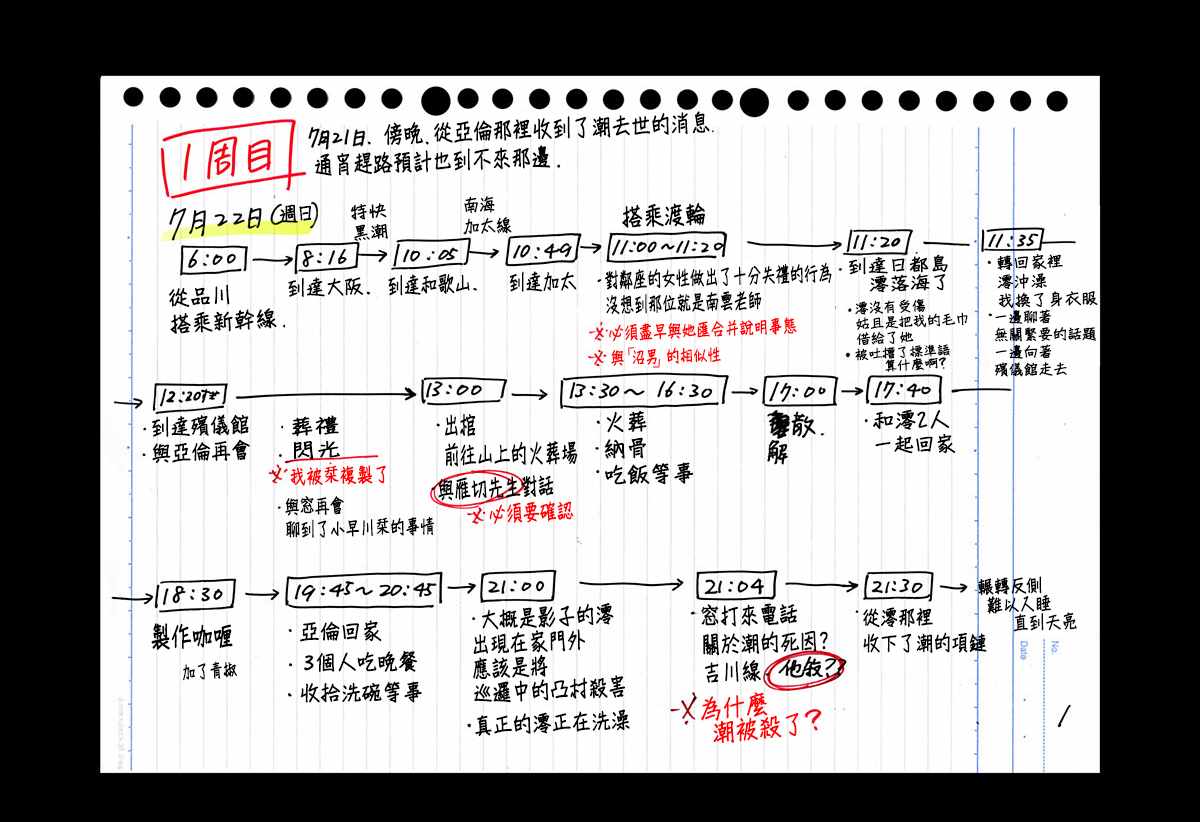 1周目
7月21日.傍晚.從亞倫那裡收到了潮去世的消息.
通宵趕路預計也到不來那邊.
7月22日(週日)
6:00
從品川
搭乘新幹線.
8:16
到達大阪.
特快
黑潮
10:05
到達和歌山.
南海
加太線
10:49
到達加太
搭乘渡輪
11:00～11:20
・對鄰座的女性做出了十分失禮的行為
沒想到那位就是南雲老師
※必須盡早與她匯合并說明事態
※與「沼男」的相似性
11:20
・到達日都島
澪落海了
・澪沒有受傷
姑且是把我的毛巾
借給了她
・被吐槽了標準語
算什麼啊?
11:35
・轉回家裡
澪沖澡
我換了身衣服
・一邊聊著
無關緊要的話題
一邊向著
殯儀館走去
12:20すぎ
・到達殯儀館
・與亞倫再會
・葬禮
・閃光
※我被栞複製了
・與窓再會
聊到了小早川栞的事情
13:00
・出棺
前往山上的火葬場
與雁切先生對話
※必須要確認
13:30～16:30
・火葬
・納骨
・吃飯等事
17:00
散.
解
17:40
・和澪2人
一起回家
18:30
製作咖喱
加了青椒
19:45～20:45
・亞倫回家
・3個人吃晚餐
・收拾洗碗等事
21:00
・大概是影子的澪
出現在家門外
應該是將
巡邏中的凸村殺害
・真正的澪正在洗澡
21:04
・窓打來電話
關於潮的死因?
吉川線.他殺??
※為什麼
潮被殺了?
21:30
・從澪那裡
收下了潮的項鏈
輾轉反側
難以入睡
直到天亮
No.
Date
1